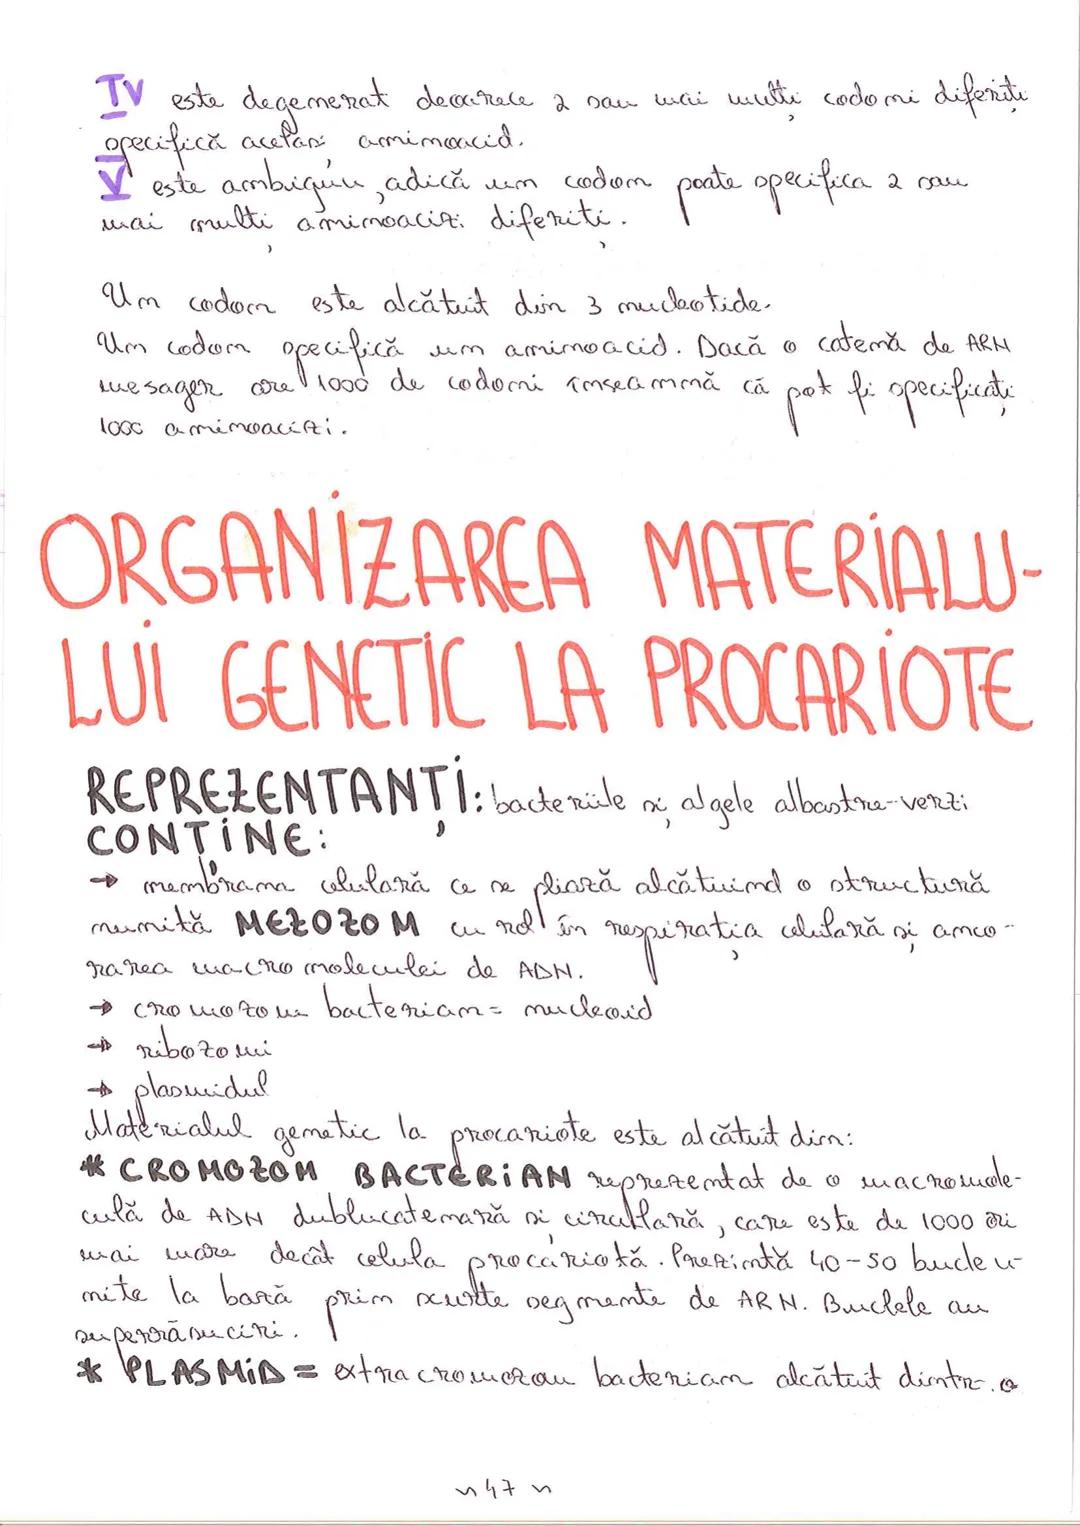 IV este degenerat deoarece 2 sau mai multi codoni diferiți
specifică același aminoacid.
V este ambiguu, adică un codon poate specifica 2 sau
mai mulți aminoacizi diferiți.
Un codon este alcătuit din 3 nucleotide.
Un codon specifică un aminoacid. Dacă o catenă de ARN
mesager are 1000 de codoni înseamnă că pot fi specificați
1000 aminoacizi.
ORGANIZAREA MATERIALU-
LUI GENETIC LA PROCARIOTE
REPREZENTANȚI: bacteriile și algele albastre-verzi
CONȚINE:
→ membrana celulară ce se pliază alcătuind o structură
numită MEZOZOM cu rol în respirația celulară și anco-
rarea macromoleculei de ADN.
→ cromozom bacterian = nucleoid
→ ribozomi
→ plasmidul
Materialul genetic la procariote este alcătuit din:
* CROMOZOM BACTERIAN reprezentat de o macromole-
culă de ADN dublucatenară și circulară, care este de 1000 ori
mai mare decât celula procariotă. Prezintă 40-50 bucle u-
nite la bază prin scurte segmente de ARN. Buclele au
superrăsuciri.
* PLASMID = extracromozom bacterian alcătuit dintr-o
~ 47 ~